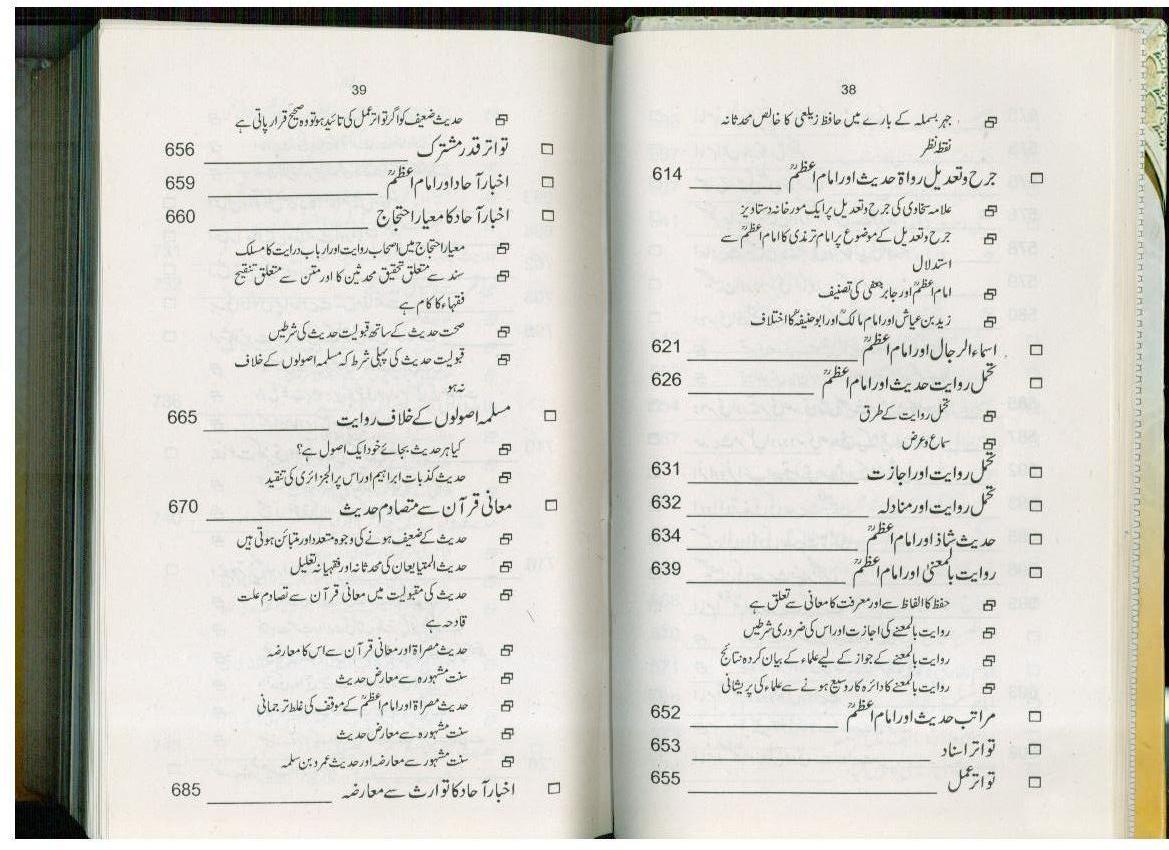 38
جہر بسملہ کے بارے میں حافظ زیلعی کا خالص محدثانہ
نقطہ نظر
جرح وتعدیل رواۃ حدیث اور امام اعظمؒ 614
علامہ سخاوی کی جرح وتعدیل پر ایک مورخانہ دستاویز
جرح وتعدیل کے موضوع پر امام ترمذی کا امام اعظمؒ سے
استدلال
امام اعظمؒ اور جابر جعفی کی تصنیف
زید بن عیاش اور امام مالکؒ اور ابوحنیفہؒ کا اختلاف
اسماء الرجال اور امام اعظمؒ 621
تحمل روایت حدیث اور امام اعظمؒ 626
تحمل روایت کے طرق
سماع وعرض
تحمل روایت اور اجازت 631
تحمل روایت اور منادلہ 632
حدیث شاذ اور امام اعظمؒ 634
روایت بالمعنیٰ اور امام اعظمؒ 639
حفظ کا الفاظ سے اور معرفت کا معانی سے تعلق ہے
روایت بالمعنے کی اجازت اور اس کی ضروری شرطیں
روایت بالمعنے کے جواز کے لیے علماء کے بیان کردہ نتائج
روایت بالمعنے کا دائرہ کار وسیع ہونے سے علماء کی پریشانی
مراتب حدیث اور امام اعظمؒ 652
تواتر اسناد 653
تواتر عمل 655
39
حدیث ضعیف کو اگر تواتر عمل کی تائید ہو تو وہ صحیح قرار پاتی ہے
تواتر قدر مشترک 656
اخبار آحاد اور امام اعظمؒ 659
اخبار آحاد کا معیار احتجاج 660
معیار احتجاج میں اصحاب روایت اور ارباب درایت کا مسلک
سند سے متعلق تحقیق محدثین کا اور متن سے متعلق تنقیح
فقہاء کا کام ہے
صحت حدیث کے ساتھ قبولیت حدیث کی شرطیں
قبولیت حدیث کی پہلی شرط کہ مسلمہ اصولوں کے خلاف
نہ ہو
مسلمہ اصولوں کے خلاف روایت 665
کیا ہر حدیث بجائے خود ایک اصول ہے؟
حدیث کذبات ابراہیم اور اس پر الجزائری کی تنقید
معانی قرآن سے متصادم حدیث 670
حدیث کے ضعیف ہونے کی وجوہ متعدد اور متبائن ہوتی ہیں
حدیث المتبایعان کی محدثانہ اور فقہیانہ تعلیل
حدیث کی مقبولیت میں معانی قرآن سے تصادم علت
قادحہ ہے
حدیث مصراۃ اور معانی قرآن سے اس کا معارضہ
سنت مشہورہ سے معارض حدیث
حدیث مصراۃ اور امام اعظمؒ کے موقف کی غلط ترجمانی
سنت مشہورہ سے معارض حدیث
سنت مشہور سے معارضہ اور حدیث عمرو بن سلمہ
اخبار آحاد کا توارث سے معارضہ 685